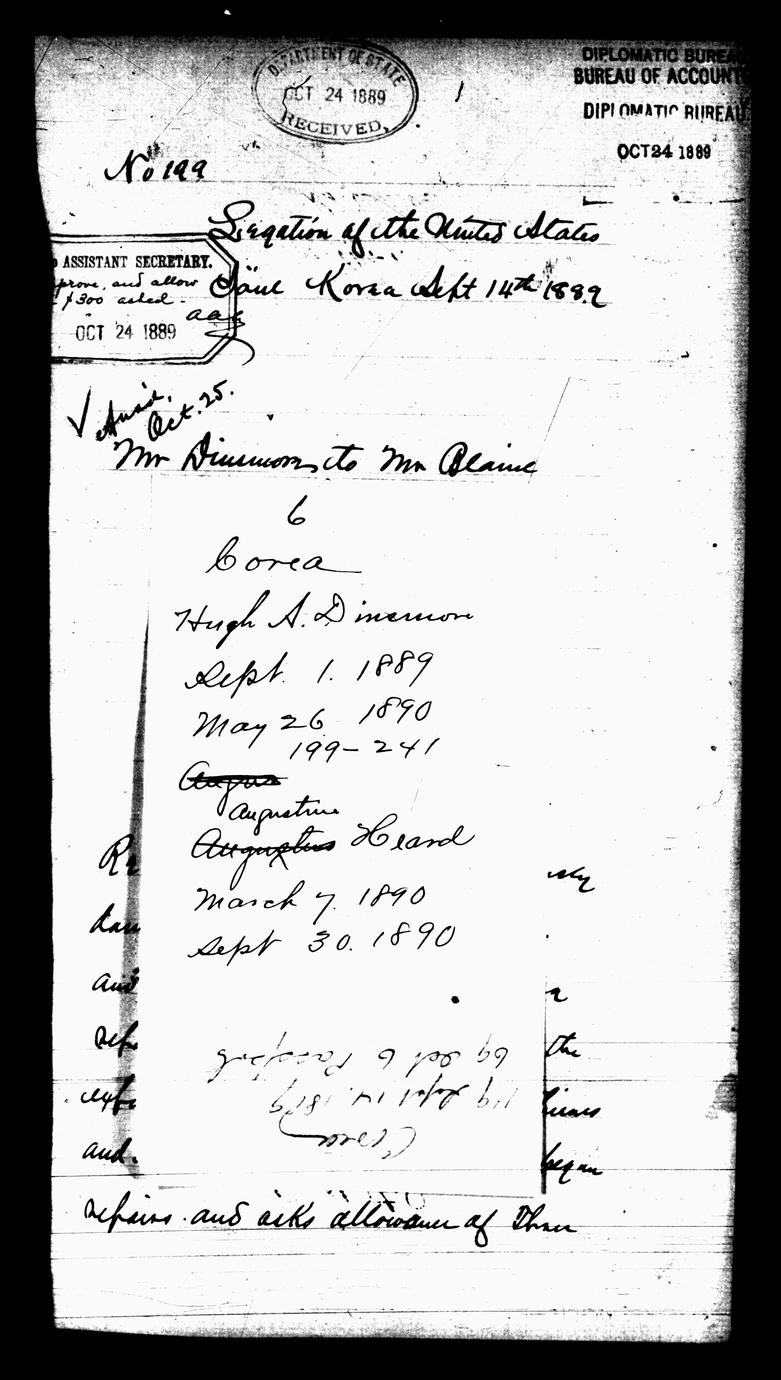 DEPARTMENT OF STATE
OCT 24 1889
RECEIVED.
1
DIPLOMATIC BUREAU
BUREAU OF ACCOUNT
DIPLOMATIC BUREAU
OCT 24 1889
No 199
Legation of the United States
Söul Korea Sept 14th 1889
ASSISTANT SECRETARY.
prove, and allow
$300 asked.
aaa
OCT 24 1889
Oct. 25.
Mr Dinsmore to Mr Blaine
6
Corea
Hugh A. Dinsmore
Sept. 1. 1889
May 26 1890
199-241
Augus
Augustine
Augustus Heard
March 7. 1890
Sept 30. 1890
the
began
and
Corea
119 Sept 14. 1889
69 Oct 6 Passports
repairs and asks allowance of Three